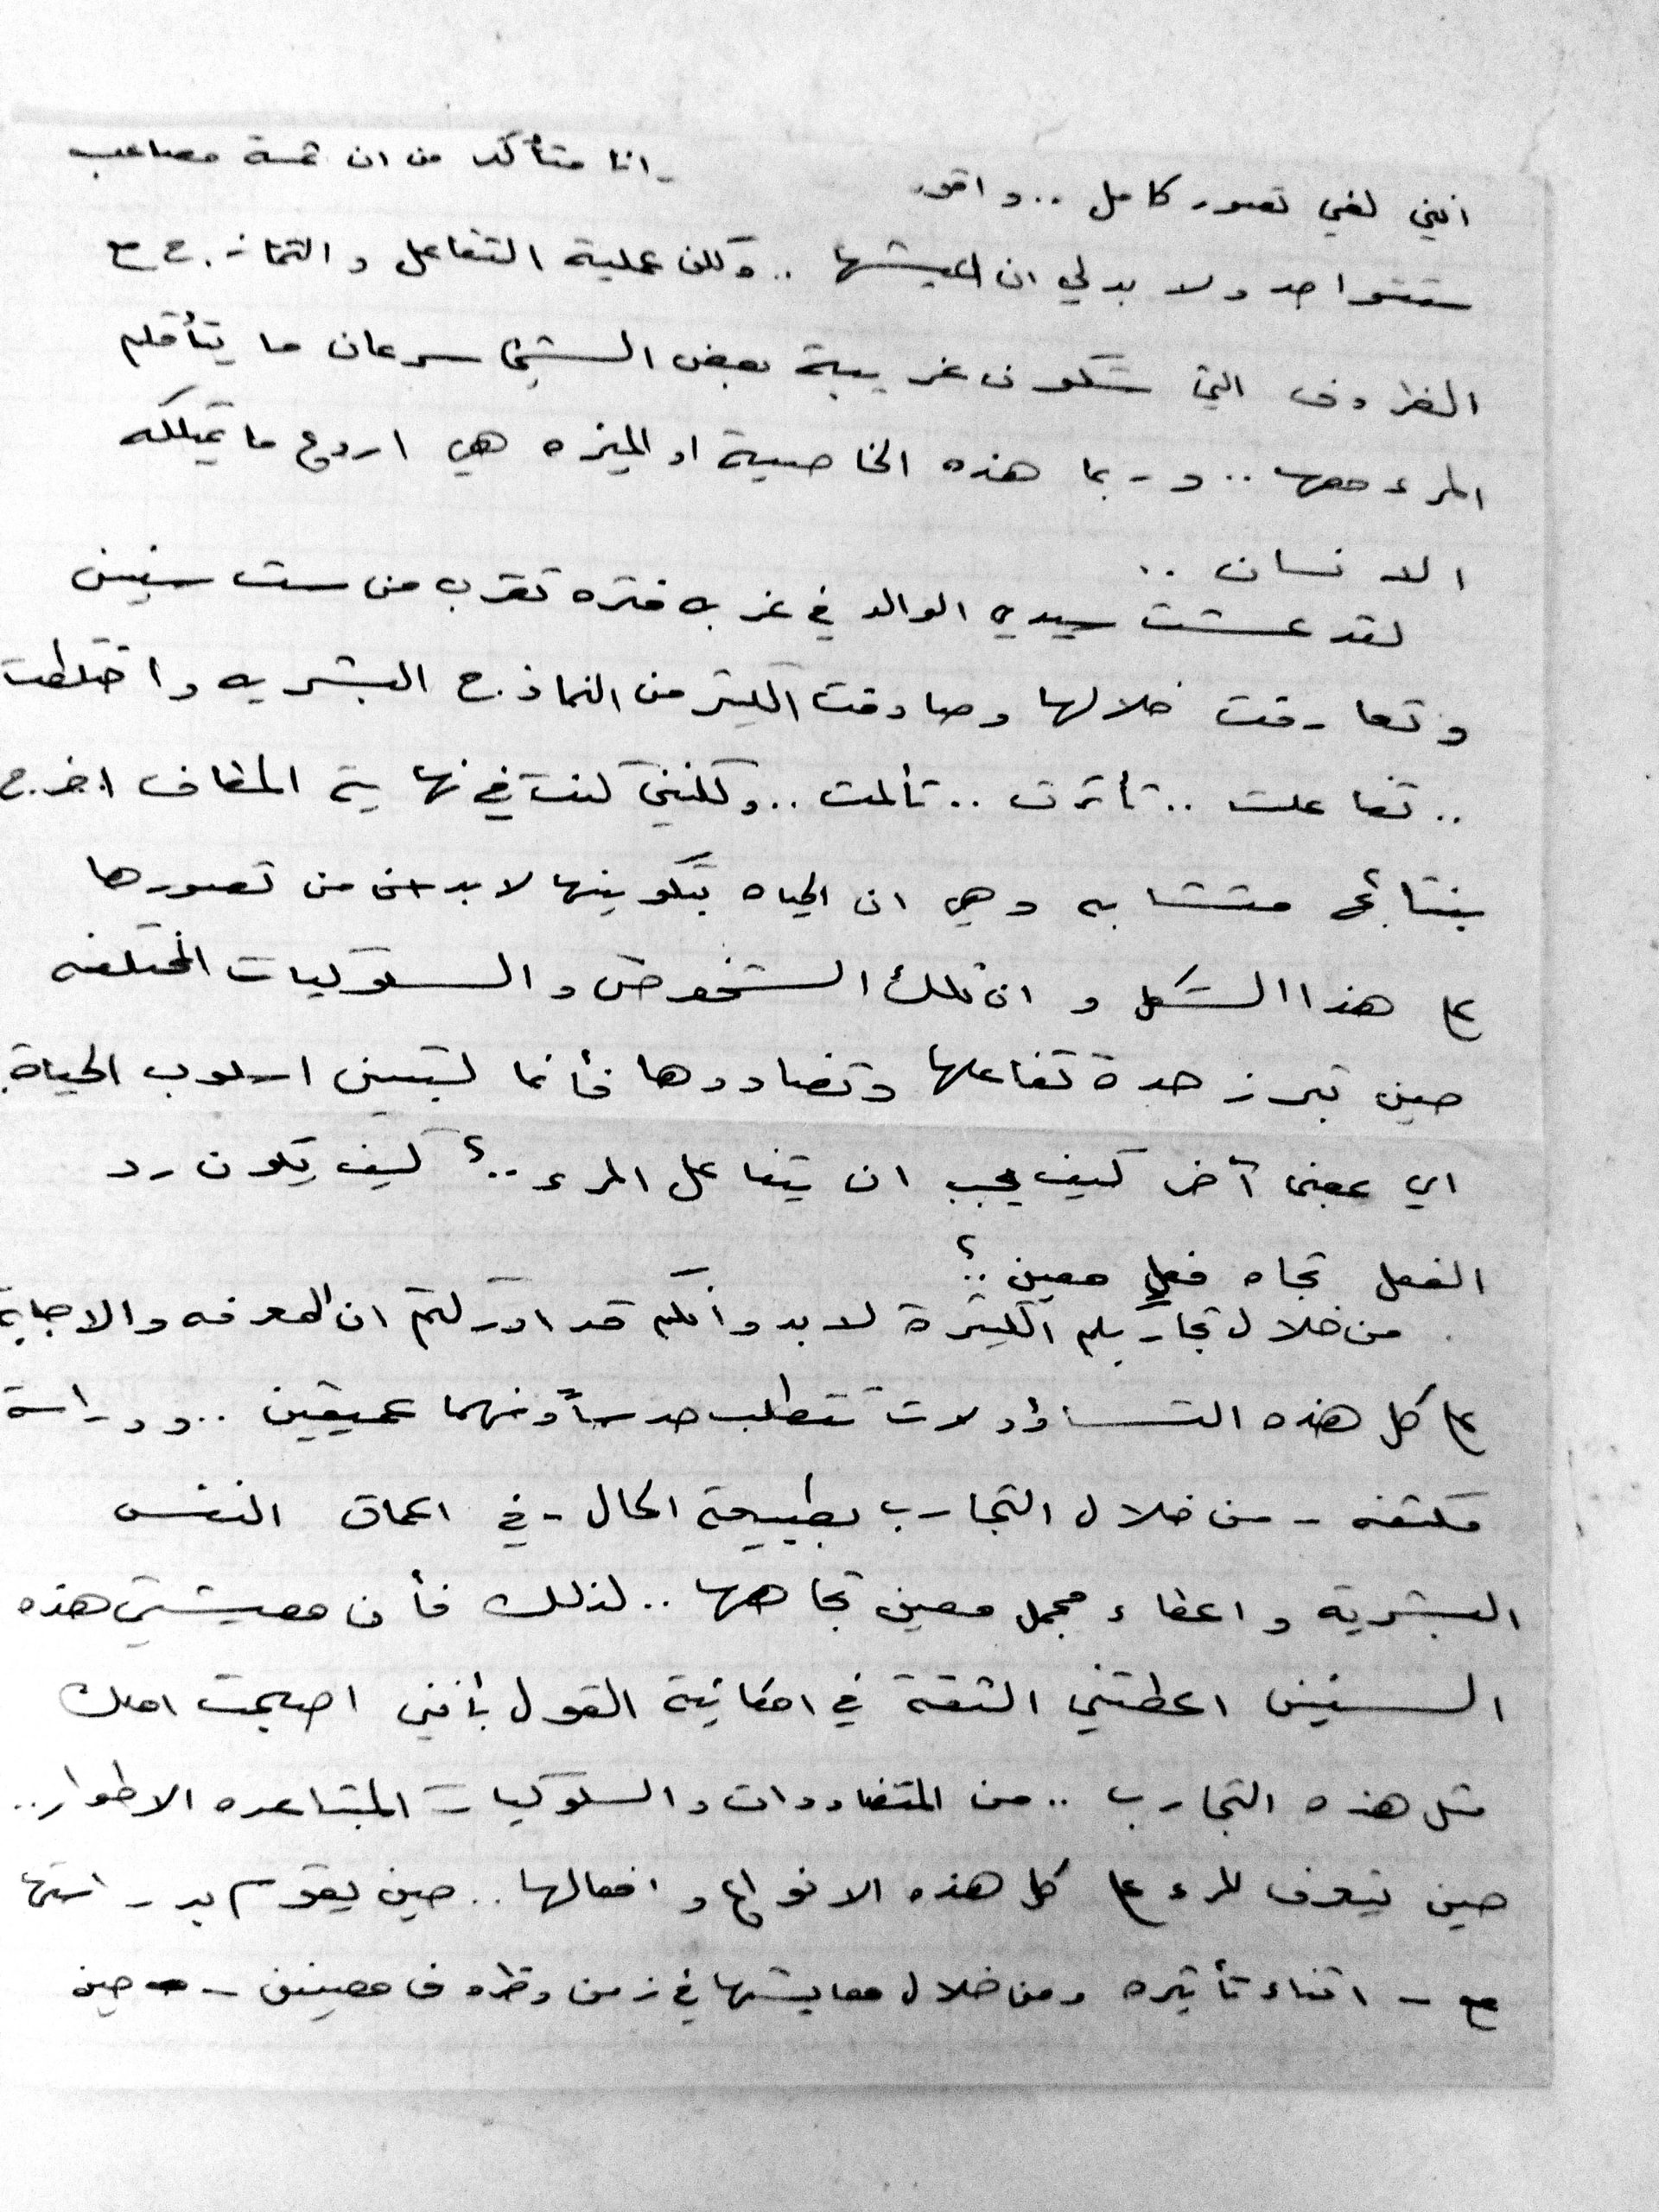 انني لفي تصور كامل .. واقو
- انا متأكد من ان ثمة مصاعب
ستتواجد ولا بد لي ان اعيشها .. ولكن عملية التفاعل والتمازج مع
الظروف التي ستكون غريبة بعض الشيء سرعان ما يتأقلم
المرء معها .. وربما هذه الخاصية او الميزه هي اروع ما يمتلكه
الانسان ..
لقد عشت سيدي الوالد في غربه فتره تقرب من ست سنين
وتعارفت خلالها وصادفت الكثير من النماذج البشريه واختلطت
.. تفاعلت .. تأثرت .. تألمت .. ولكنني كنت في نهاية المطاف اخرج
بنتائج متشابه وهي ان الحياه بتكوينها لا بد من تصورها
على هذا الشكل و ان تلك الشخوص والسلوكيات المختلفه
حين تبرز حدة تفاعلها وتضاددها فأنما لتبين اسلوب الحياة.
اي بمعنى آخر كيف يجب ان يتفاعل المرء ..؟ كيف يكون رد
الفعل تجاه فعل معين ..؟
. من خلال تجاربكم الكثيرة لا بد وانكم قد ادركتم ان المعرفه والاجابة
على كل هذه التساؤلات تتطلب حدساً وفهما عميقين .. ودراسة
مكثفه - من خلال التجارب بطبيعة الحال - في اعماق النفس
البشرية واعطاء مجمل معين تجاهها .. لذلك فأن معيشتي هذه
السنين اعطتني الثقة في امكانية القول بأنني اصبحت املك
مثل هذه التجارب .. من المتضاددات والسلوكيات المتباعده الاطوار ..
حين يتعرف المرء على كل هذه الانواع وافعالها .. حين يقوم بدراستها
مع - اثناء تأثيره ومن خلال معايشتها في زمن وظروف معينين - حين